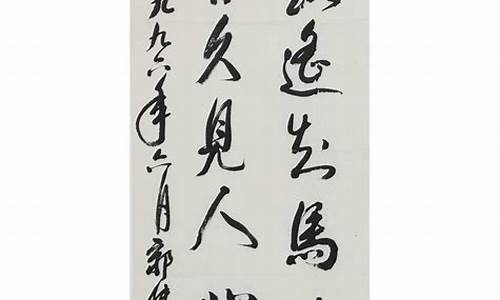 遙知馬
久見人
九九六年六月郭